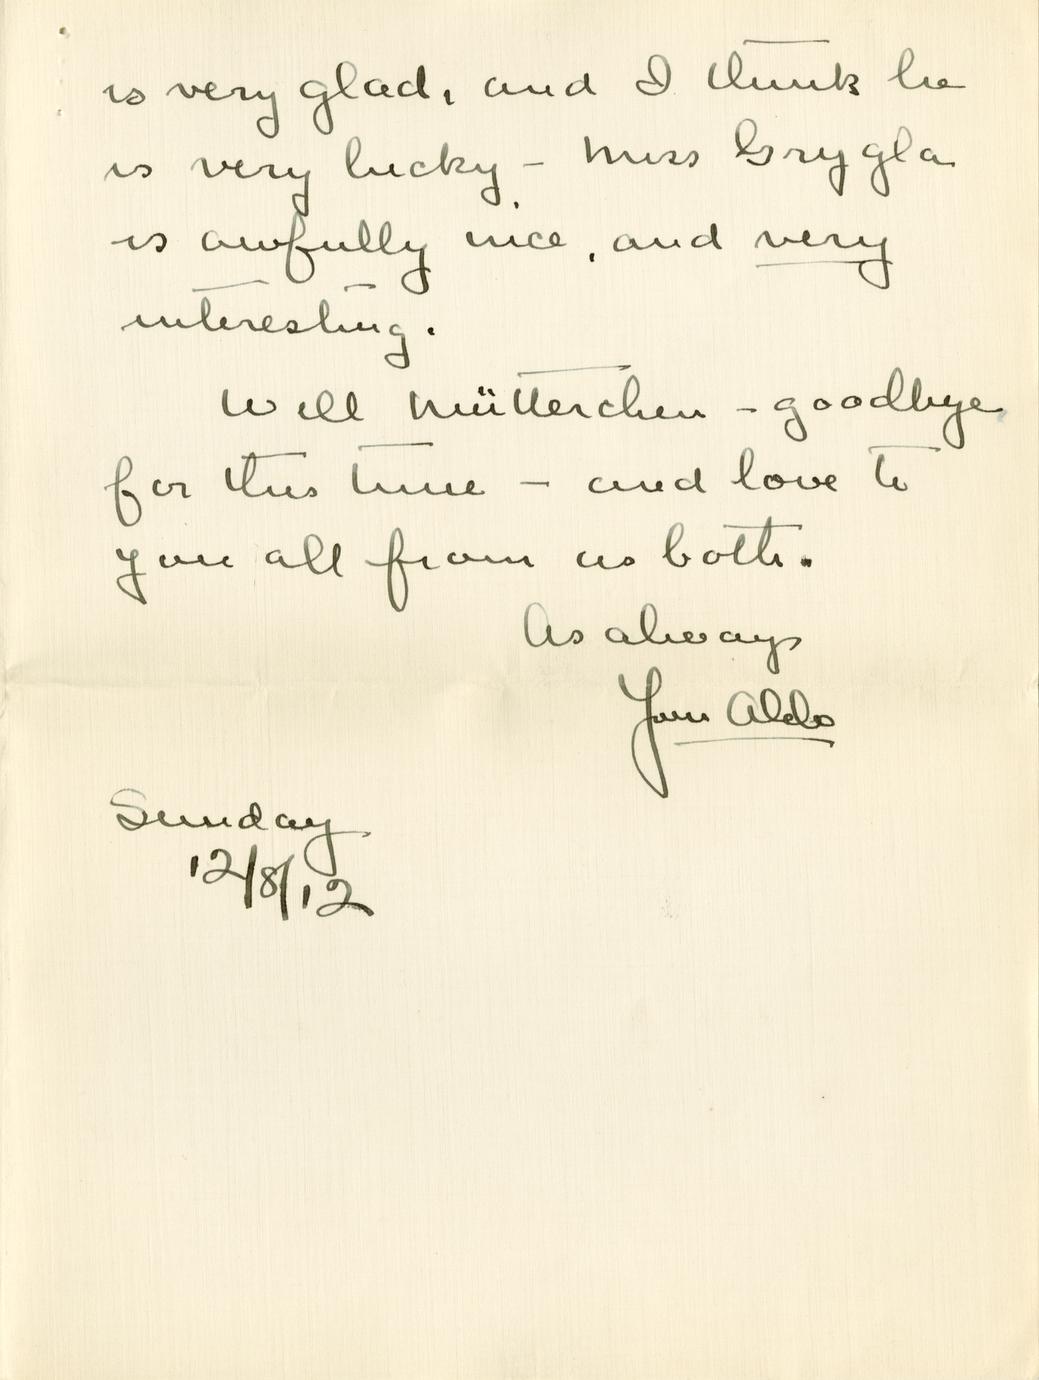 is very glad, and I think he
is very lucky - Miss Grygla
is awfully nice, and very
interesting.
Well Mütterchen - goodbye
for this time - and love to
you all from us both.
As always
Your Aldo
Sunday
12/8/12